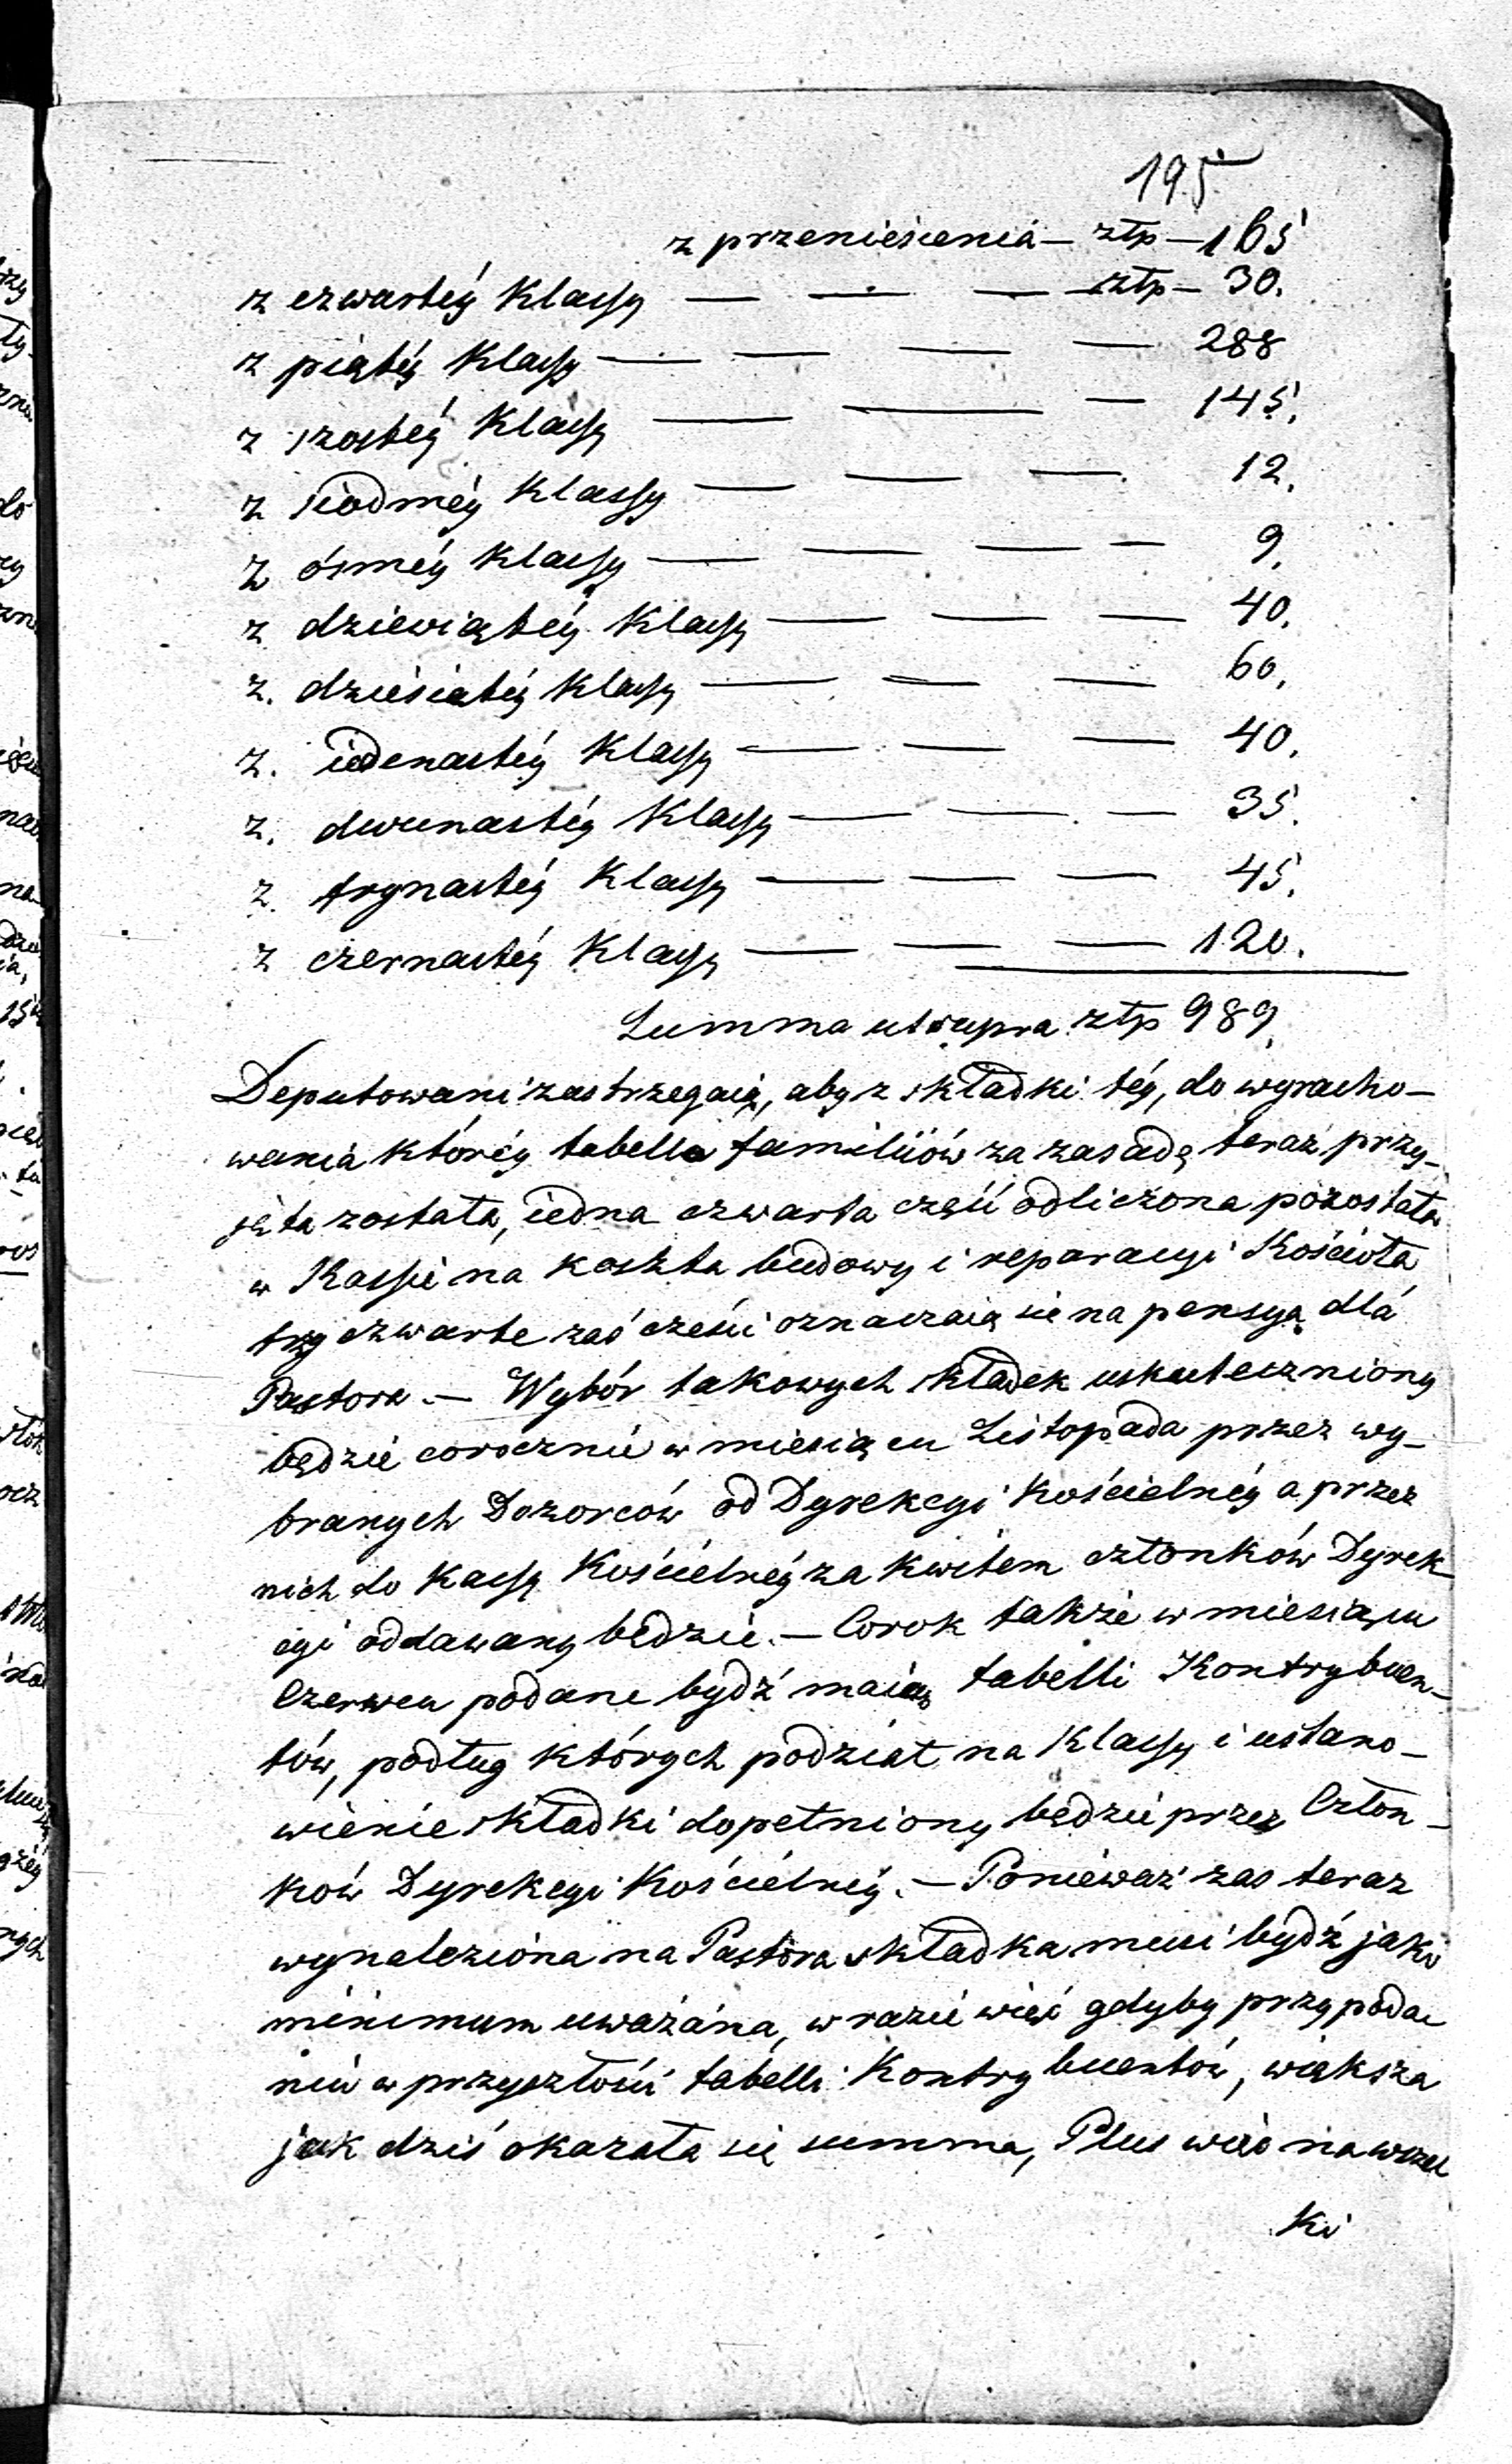 195
z przeniesienia — złp — 165
z czwartéy Klassy — — — złp — 30.
z piątéy Klassy — — — — 288
z szostéy Klassy — — — 145.
z siodméy Klassy — — — 12.
z ósméy Klassy — — — — 9.
z dziewiątéy Klassy — — — 40.
z. dziesiątéy Klassy — — — 60.
z. iedenastéy Klassy — — — 40.
z. dwunastéy Klassy — — — 35.
z. trzynastéy Klassy — — — 45.
z czernastéy Klassy — — — 120.
Summa utsupra złp 989.
Deputowani zastrzegaią, aby z składki téy, do wyracho-
wania któréy tabella familiiów za zasadę teraz przy-
jęta została, iedna czwarta część odliczona pozostała
w Kassie na koszta budowy i reparacyi Kościoła
trzy czwarte zaś cześci oznaczaią sie na pensyą dla
Pastora. — Wybór takowych składek uskuteczniony
będzie corocznie w miesiącu Listopada przez wy-
branych Dozorców od Dyrekcyi Kościelnéy a przez
nich do Kassy Kościelnéy za kwitem członków Dyrek
cyi oddawany będzie. — Corok także w miesiącu
Czerwcu podane bydź maią tabelli Kontrybuen-
tów, podług których podział na Klassy i ustano-
wienie składki dopełniony będzie przez Człon-
ków Dyrekcyi Kościelnéy. — Ponieważ zas teraz
wynaleziona na Pastora składka musi bydź jako
minimum uważána, w razie więc gdyby przy poda
niu w przyszłości tabelli Kontrybuentów, większa
jak dziś okazała się summa, Plus więc na wszel
ki